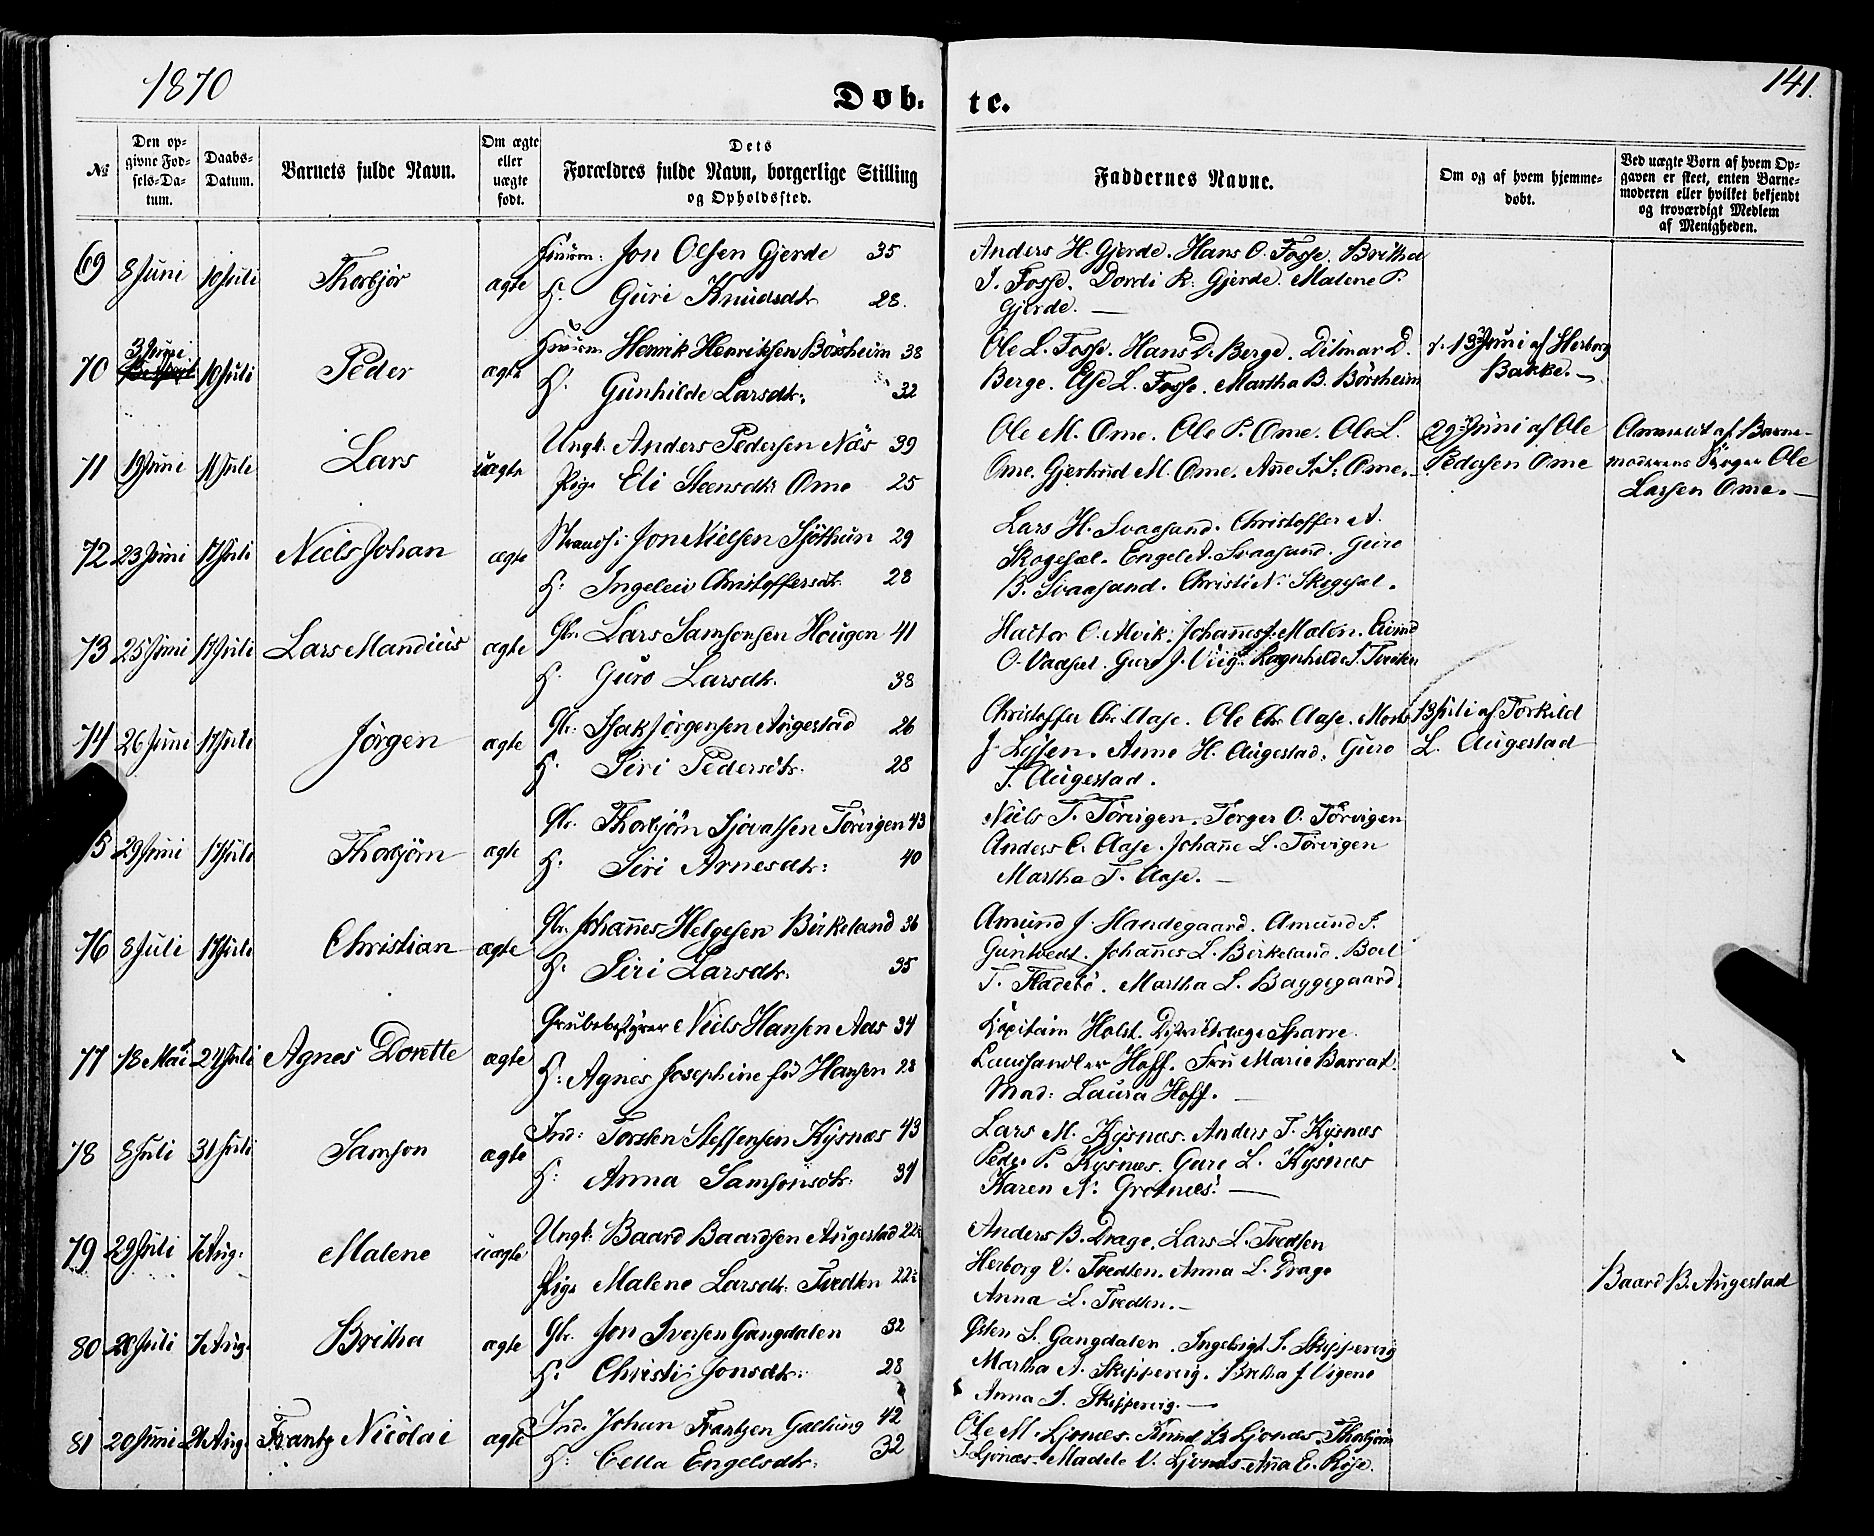 1870
141.
Døb. te.
№
Den opgivne Fødsels-Datum.
Daabs-Datum.
Barnets fulde Navn.
Om ægte eller uægte født.
Dets
Forældres fulde Navn, borgerlige Stilling
og Opholdssted.
Faddernes Navne.
Om og af hvem hjemmedøbt.
Ved uægte Børn af hvem Opgaven er skeet, enten Barnemoderen eller hvilket bekjendt og troværdigt Medlem af Menigheden.
69 8 Juni 10 Juli Thorbjør ægte Huusm: Jon Olsen Gjerde 35
H. Guri Knudsdtr. 28.
Anders H. Gjerde. Hans O. Fosse. Britha
I. Fosse. Dordi R. Gjerde. Malene P.
Gjerde. —
70 3 Juni 10 Juli Peder ægte Huusm: Henrik Henriksen Børsheim 38
H. Gunhilde Larsdtr. 32
Ole L. Fosse. Hans D. Berge. Ditmar D.
Berge. Else L. Fosse. Martha B. Börsheim
13 Juni af Herborg
Bakke. —
71 19 Juni 11 Juli Lars uægte Ungk. Anders Pedersen Näs 39
Pige Eli Steensdtr. Ome 25
Ole M. Ome. Ole P. Ome. Ole L.
Ome. Gjertrud M. Ome. Anne I. S. Ome.
29 Juni af Ole
Pedersen Ome
af Barne-
moderens Ole
Larsen Ome. —
72 23 Juni 17 Juli Niels Johan ægte Strands: Jon Nielsen Sjöthun 29
H: Ingeleiv Christoffersdt. 28
Lars H. Svaasand. Christoffer A.
Skogesæl. Engel I. Svaasand. Guro
B. Svaasand. Christi N. Skogesæl.
73 25 Juni 17 Juli Lars Mandius ægte Gbr. Lars Samsonsen Hougen 41
H. Guro Larsdtr. 38
O. Mvik. Johannes J. Malen. Eivind
O. Vadsel. Guro J. Viig. Ragnhilde S. Tveiten
74 26 Juni 17 Juli Jörgen ægte Gbr. Isak Jörgensen Augestad 26
H. Siri Pedersdtr. 28
Christoffer Chr. Aase. Ole Chr. Aase.
J. Anna H. Augestad. Guro
S. Augestad.
13 Juli af Torkild
L. Augestad
75 29 Juni 17 Juli Thorbjörn ægte Gbr. Thorbjörn Sjovatsen Törvigen 43
H. Siri Arnesdtr: 40
Niels T. Törvigen. Torger O. Törvigen
Anders C. Aase. Johanne L. Törvigen
Martha T. Aase. —
76 8 Juli 17 Juli Christian ægte Gbr. Johannes Helgesen Birkeland 36
H: Siri Larsdtr. 35
Amund J. Handegaard. Amund I.
Guntvedt. Johannes L. Birkeland. Boel
T. Fladebö. Martha L. Baggegaard.
77 18 Mai 24 Juli Agnes Dorette ægte Grubebestyrer Niels Hansen Aas 34
H: Agnes Josephine föd Hansen 28
Kapitain Holst. Distriktslæge Sparre.
Landhandler Hoff. Fru Marie Barrat.
Mad: Laura Hoff. —
78 8 Juli 31 Juli Samson ægte Ind: Torsten Steffensen Kysnæs 43
H: Anna Samsonsdtr: 34
Lars M. Kysnæs. Anders T. Kysnæs
Peder P. Kysnæs. Guro L. Kysnæs
Karen N. Grotnæs. —
79 29 Juli 7 Aug. Malene uægte Ungk: Baard Baardsen Augestad 22½
Pige Malene Larsdtr. Tvedten 22½
Anders B. Drage. Lars L. Tvedten
Herborg V. Tvedten. Anna L. Drage
Anna L. Tvedten. —
Baard B. Augestad
80 28 Juli 7 Aug. Britha ægte Gbr. Jon Iversen Gangdalen 32
H. Christi Jonsdtr: 28
Östen S. Gangdalen. Ingebrigt S. Skippevig
Martha A. Skippevig. Britha J. Vigene
Anna S. Skippevig. —
81 20 Juni 21 Aug. Frantz Nicolai ægte Ind. Johan Frantzen Galtung 42
H: Cella Engelsdtr. 32
Ole M. Ljonæs. Knud B. Ljonæs. Thorbjörn
T. Ljonæs. Madele V. Ljonæs. Anna E. Röse.